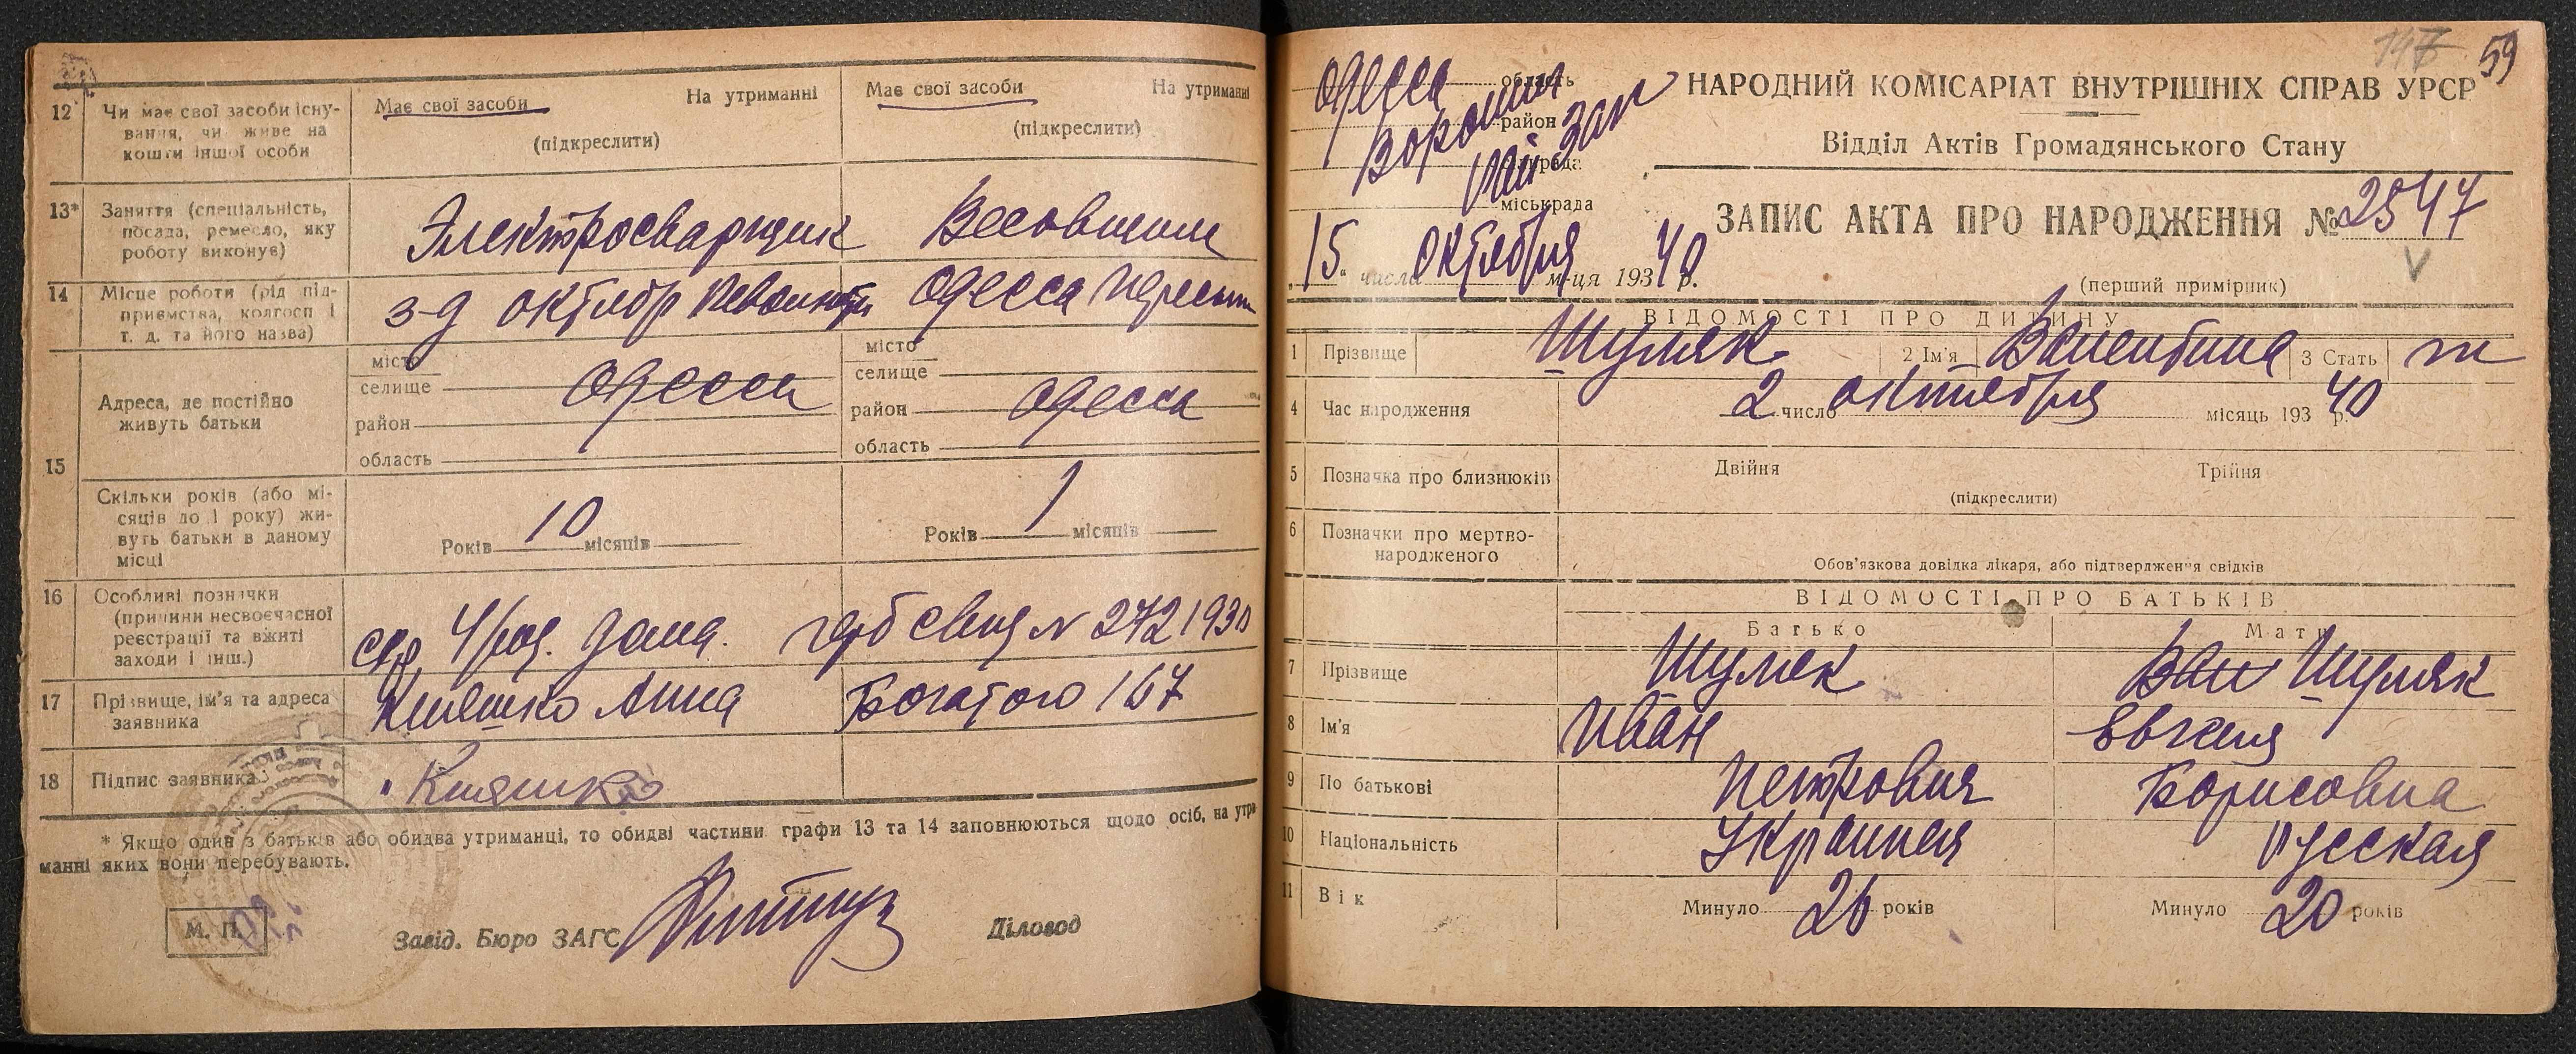 12 Чи має свої засоби існу-
вання, чи живе на
кошти іншої особи
Має свої засоби На утриманні
(підкреслити)
Має свої засоби На утриманні
(підкреслити)
13* Заняття (спеціальність,
посада, ремесло, яку
роботу виконує)
Электросварщик
14 Місце роботи (рід під-
приємства, колгосп і
т. д. та його назва)
з-д октябр
Одесса
15 Адреса, де постійно
живуть батьки
місто
селище
район
область
Одесса
місто
селище
район
область
Одесса
Скільки років (або мі-
сяців до 1 року) жи-
вуть батьки в даному
місці
Років 10 місяців
Років 1 місяців
16 Особливі позначки
(причини несвоєчасної
реєстрації та вжиті
заходи і інш.)
спр. 4 род. дома. N 272 1930
17 Прізвище, ім'я та адреса
заявника
Княшко Анна Богатого 167
18 Підпис заявника
Княшко
* Якщо один з батьків або обидва утриманці, то обидві частини графи 13 та 14 заповнюються щодо осіб, на утри
манні яких вони перебувають.
М. П.
Завід. Бюро ЗАГС
Діловод
147 59
Одесса область
район
сільрада
міськрада
НАРОДНИЙ КОМІСАРІАТ ВНУТРІШНІХ СПРАВ УРСР
Відділ Актів Громадянського Стану
ЗАПИС АКТА ПРО НАРОДЖЕННЯ № 2547
„15“ числа октября м-ця 193 40 р.
(перший примірник)
ВІДОМОСТІ ПРО ДИТИНУ
1 Прізвище Шуляк 2 Ім'я Валентина 3 Стать ж
4 Час народження 2 число октября місяць 193 40 р.
5 Позначка про близнюків Двійня Трійня
(підкреслити)
6 Позначки про мертво-
народженого
Обов'язкова довідка лікаря, або підтвердження свідків
ВІДОМОСТІ ПРО БАТЬКІВ
Батько Мати
7 Прізвище Шуляк Шуляк
8 Ім'я Иван Евгения
9 По батькові Петрович Борисовна
10 Національність Украинец Русская
11 Вік Минуло 26 років Минуло 20 років